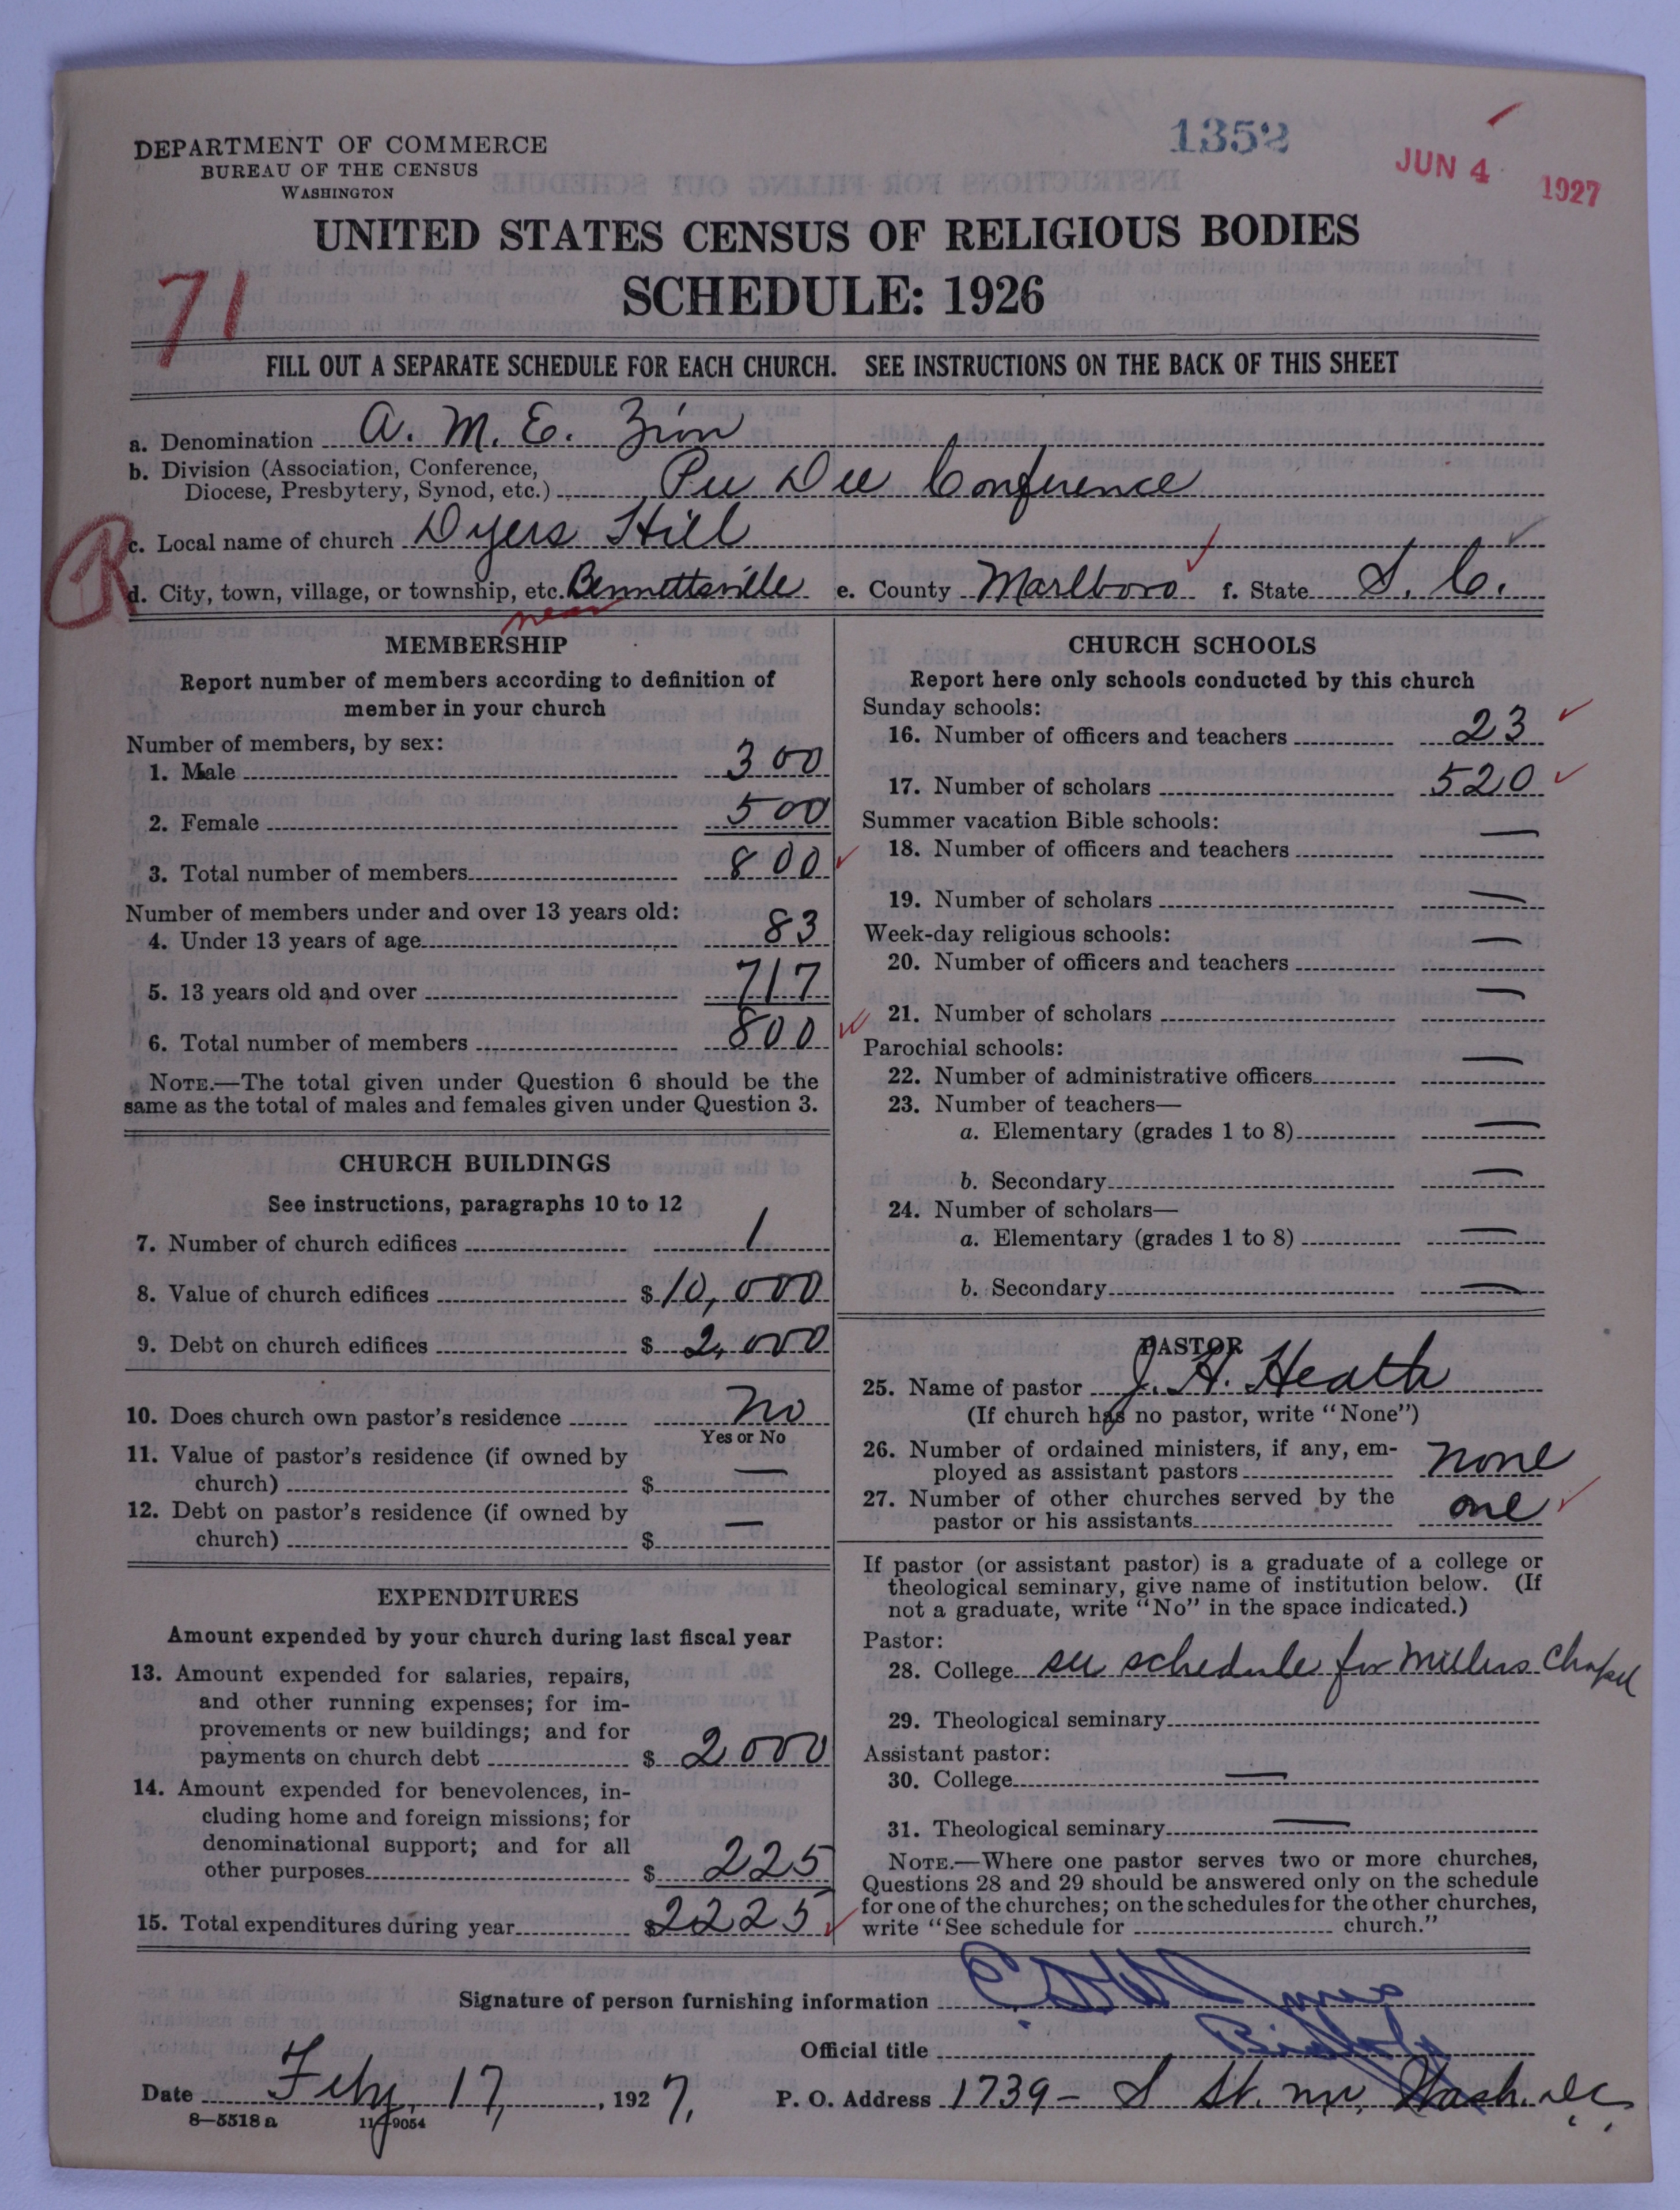 1352
JUN 4 1927
DEPARTMENT OF COMMERCE
BUREAU OF THE CENSUS
WASHINGTON
UNITED STATES CENSUS OF RELIGIOUS BODIES
SCHEDULE: 1926
71
FILL OUT A SEPARATE SCHEDULE FOR EACH CHURCH. SEE INSTRUCTIONS ON THE BACK OF THIS SHEET
a. Denomination A. M. E. Zion
b. Division (Association, Conference,
Diocese, Presbytery, Synod, etc.) Pee Dee Conference
R
c. Local name of church Dyers Hill
d. City, town, village, or township, etc. Bennettsville e. County Marlboro f. State S. C.
near
MEMBERSHIP
Report number of members according to definition of
member in your church
Number of members, by sex:
1. Male 300
2. Female 500
3. Total number of members 800
Number of members under and over 13 years old:
4. Under 13 years of age 83
5. 13 years old and over 717
6. Total number of members 800
NOTE.—The total given under Question 6 should be the
same as the total of males and females given under Question 3.
CHURCH BUILDINGS
See instructions, paragraphs 10 to 12
7. Number of church edifices 1
8. Value of church edifices $ 10,000
9. Debt on church edifices $ 2,000
10. Does church own pastor's residence No
Yes or No
11. Value of pastor's residence (if owned by
church) $ —
12. Debt on pastor's residence (if owned by
church) $ —
EXPENDITURES
Amount expended by your church during last fiscal year
13. Amount expended for salaries, repairs,
and other running expenses; for im-
provements or new buildings; and for
payments on church debt $ 2000
14. Amount expended for benevolences, in-
cluding home and foreign missions; for
denominational support; and for all
other purposes $ 225
15. Total expenditures during year $ 2225
CHURCH SCHOOLS
Report here only schools conducted by this church
Sunday schools:
16. Number of officers and teachers 23
17. Number of scholars 520
Summer vacation Bible schools:
18. Number of officers and teachers —
19. Number of scholars —
Week-day religious schools:
20. Number of officers and teachers —
21. Number of scholars —
Parochial schools:
22. Number of administrative officers —
23. Number of teachers—
a. Elementary (grades 1 to 8) —
b. Secondary —
24. Number of scholars—
a. Elementary (grades 1 to 8) —
b. Secondary —
PASTOR
25. Name of pastor J. H. Heath
(If church has no pastor, write "None")
26. Number of ordained ministers, if any, em-
ployed as assistant pastors none
27. Number of other churches served by the
pastor or his assistants one
If pastor (or assistant pastor) is a graduate of a college or
theological seminary, give name of institution below. (If
not a graduate, write "No" in the space indicated.)
Pastor:
28. College see schedule for Millers Chapel
29. Theological seminary
Assistant pastor:
30. College —
31. Theological seminary —
NOTE.—Where one pastor serves two or more churches,
Questions 28 and 29 should be answered only on the schedule
for one of the churches; on the schedules for the other churches,
write "See schedule for church."
Signature of person furnishing information Jones
Official title Bishop
Date Feby. 17, 1927, P. O. Address 1739 - S St. nw, Wash. D.C.
8—5518 a 11—9054